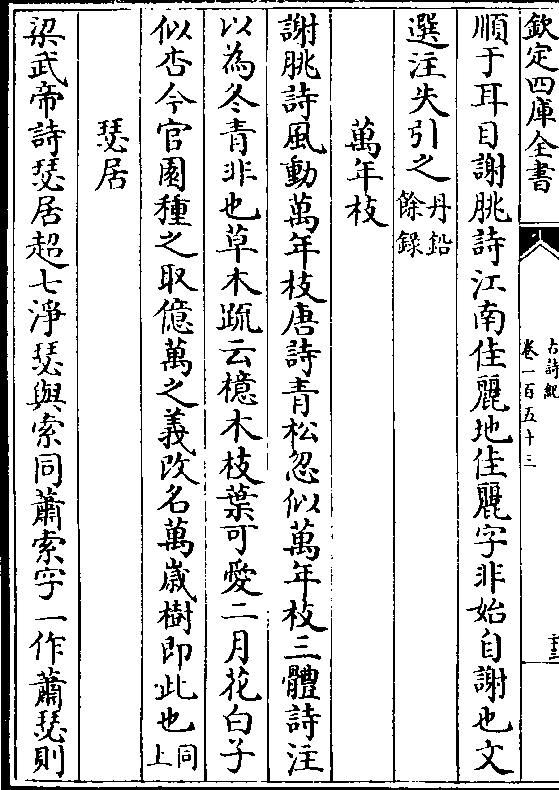 欽定四庫全書
古詩紀
卷一百五十三
順于耳目謝脁詩江南佳麗地佳麗字非始自謝也文
選注失引之丹鉛餘録
萬年枝
謝脁詩風動萬年枝唐詩青松忽似萬年枝三體詩注
以為冬青非也草木疏云檍木枝葉可愛二月花白子
似杏今官園種之取億萬之義改名萬嵗樹即此也同上
瑟居
梁武帝詩瑟居超七淨瑟與索同蕭索字一作蕭瑟則